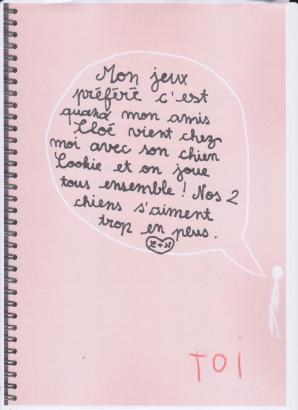 Mon jeux
préféré c'est
quand mon amis
Cloé vient chez
moi avec son chien
Cookie et on joue
tous ensemble ! Nos 2
chiens s'aiment
trop en plus.
TOI